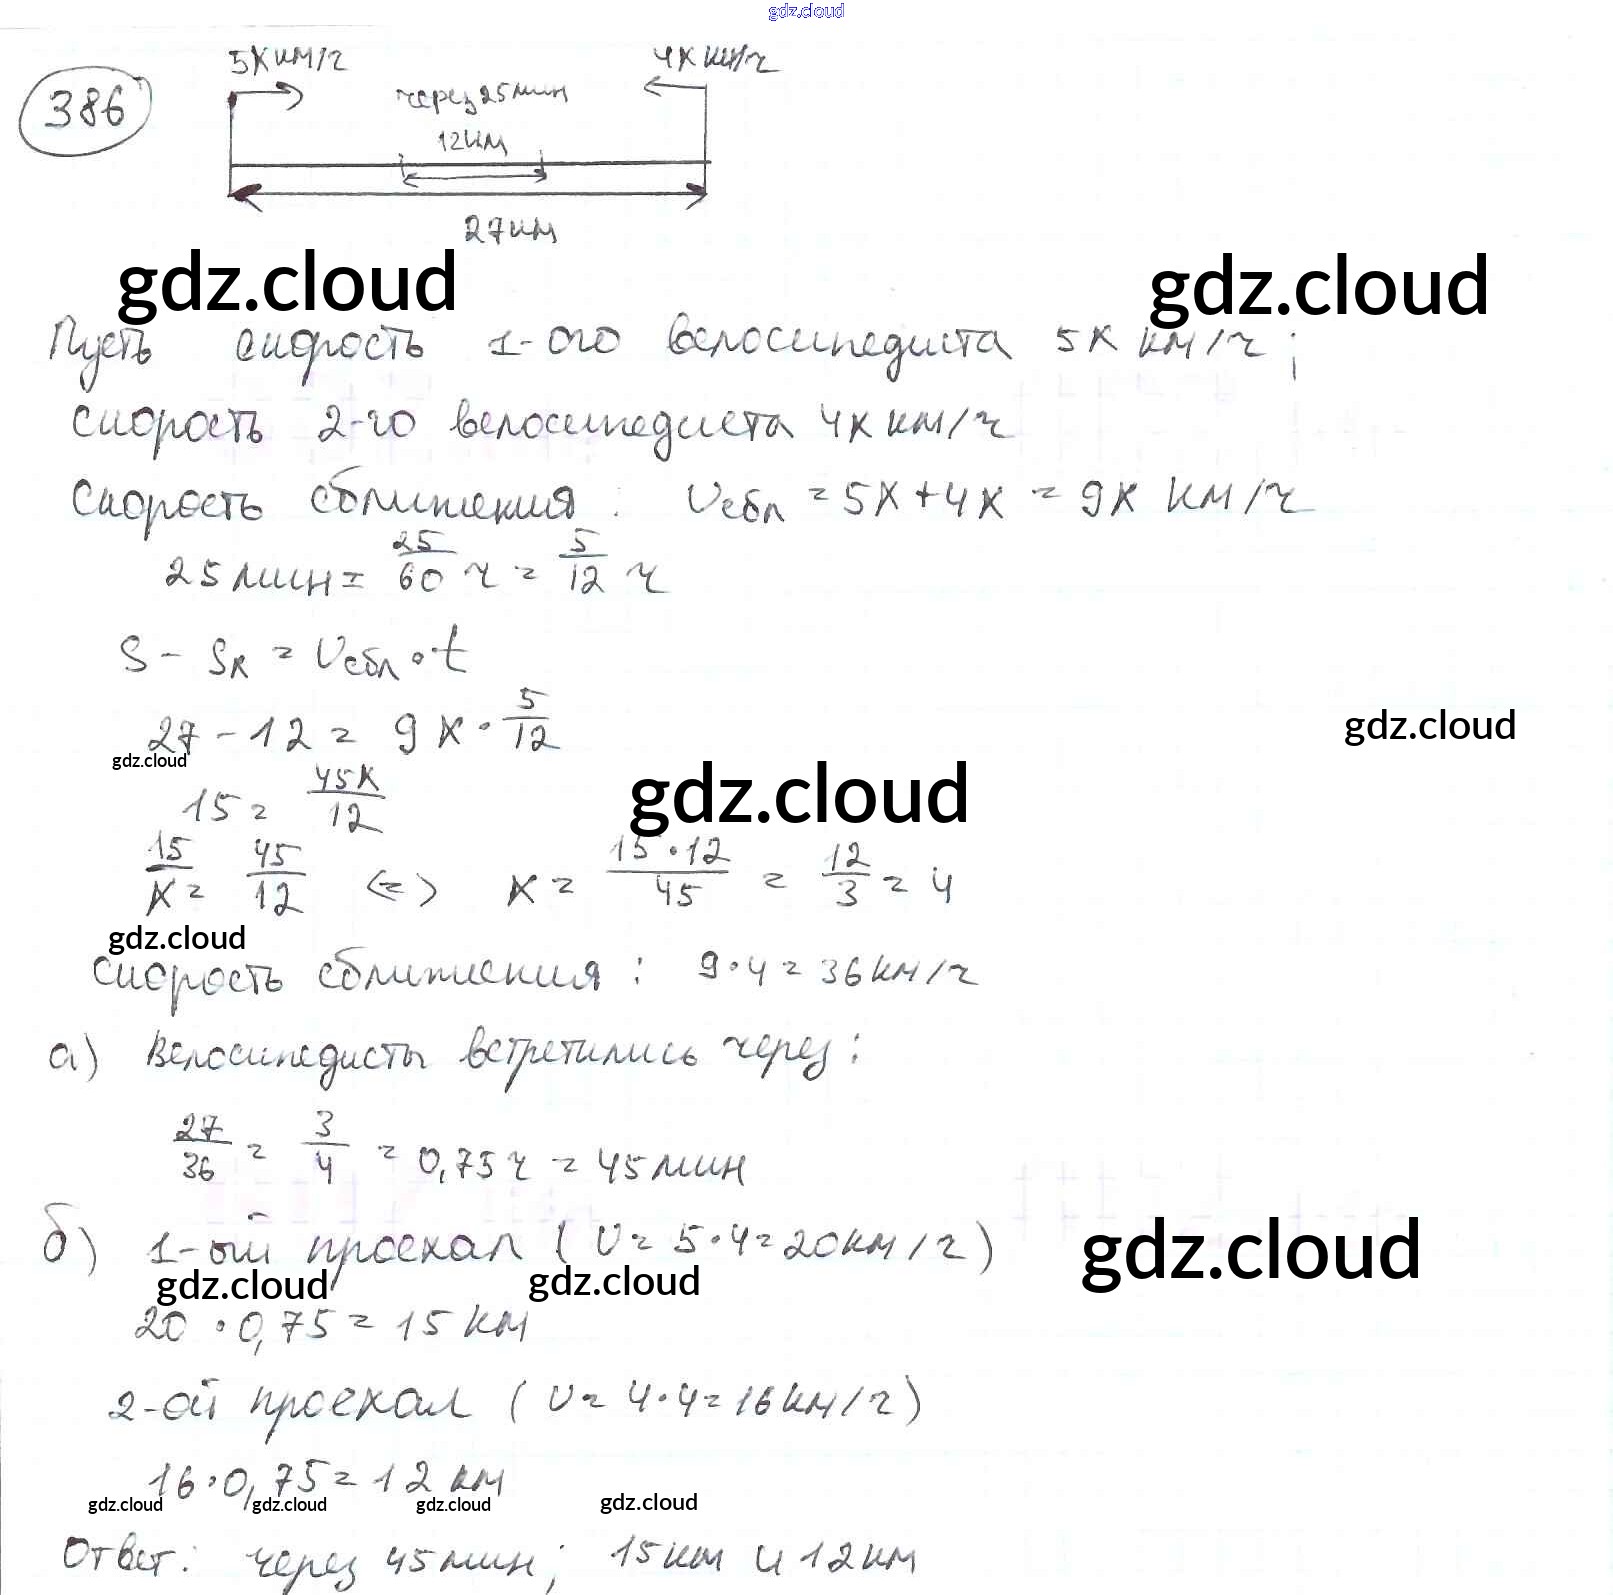 gdz.cloud
386
5x км/ч
4x км/ч
через 25 мин
12 км
27 км
gdz.cloud
gdz.cloud
Пусть скорость 1-ого велосипедиста 5x км/ч;
скорость 2-го велосипедиста 4x км/ч
Скорость сближения: Vсбл = 5x + 4x = 9x км/ч
25 мин = 25/60 ч = 5/12 ч
S - Sк = Vсбл · t
27 - 12 = 9x · 5/12
gdz.cloud
gdz.cloud
15 = 45x/12
gdz.cloud
15/x = 45/12 <=> x = 15·12/45 = 12/3 = 4
gdz.cloud
Скорость сближения: 9·4 = 36 км/ч
а) Велосипедисты встретились через:
27/36 = 3/4 = 0,75 ч = 45 мин
б) 1-ый проехал (V = 5·4 = 20 км/ч)
gdz.cloud
gdz.cloud
gdz.cloud
20 · 0,75 = 15 км
2-ой проехал (V = 4·4 = 16 км/ч)
16 · 0,75 = 12 км
gdz.cloud
gdz.cloud
gdz.cloud
gdz.cloud
Ответ: через 45 мин; 15 км и 12 км